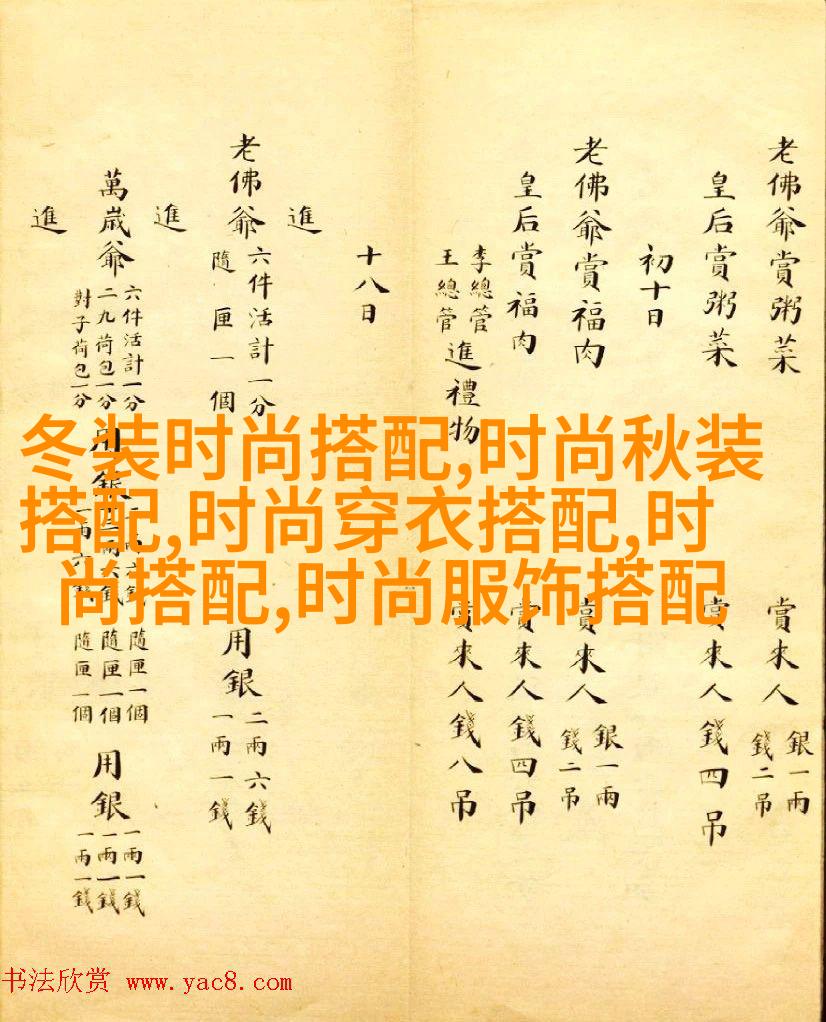 老佛爺賞粥菜 賞來人 銀一兩 錢二吊
皇后賞粥菜 賞來人錢四吊
初十日
老佛爺賞福肉 賞來人 銀一兩 錢二吊
皇后賞福肉 賞來人錢四吊
李總管 王總管 進禮物 賞來人錢八吊
十八日
進
老佛爺 六件活計一分 隨匣一個 用銀 二兩六錢 一兩一錢
進
萬歲爺 六件活計一分 二九荷包一分 對子荷包一分 用銀 兩六錢 兩六錢 一兩六錢 隨匣一個 隨匣一個 隨匣一個 用銀 一兩一錢 一兩一錢 一兩一錢
進
冬装时尚搭配,时尚秋装
搭配,时尚穿衣搭配,时
尚搭配,时尚服饰搭配
书法欣赏 www.yac8.com